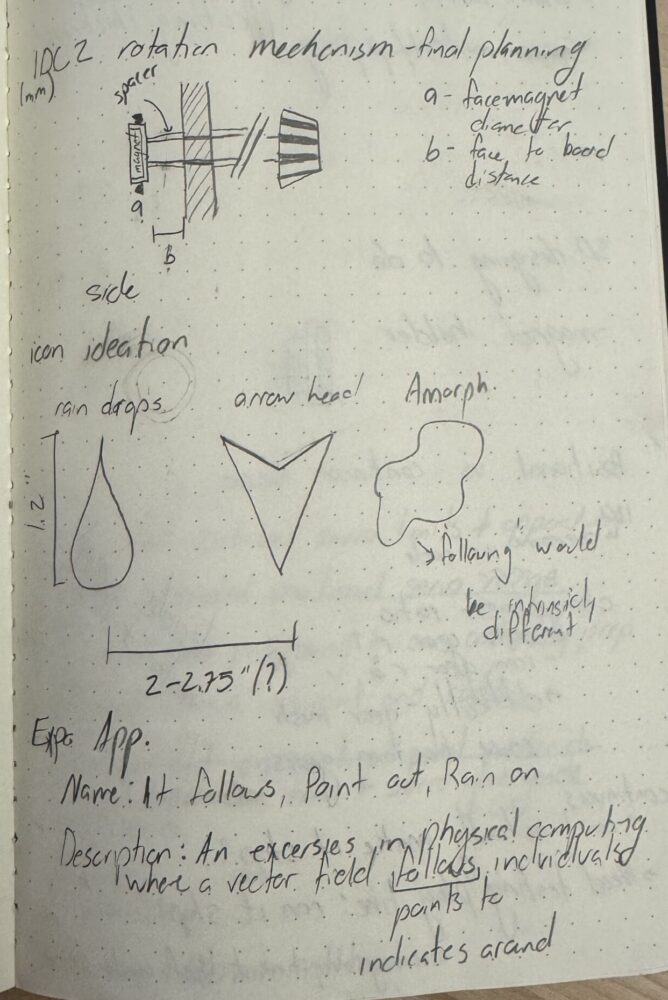 IDC2 rotation mechanism - final planning
(mm)
spacer
a - facemagnet
diameter
b - face to board
distance
magnet
a
B
side
icon ideation
rain drops
arrow head
Amorph.
1.2"
"following" would
be intrinsicly
different
2-2.75"(?)
Expo App.
Name: It follows, Point out, Rain on
Description: An excersies in physical computing
where a vector field follows individuals
points to
indicates around